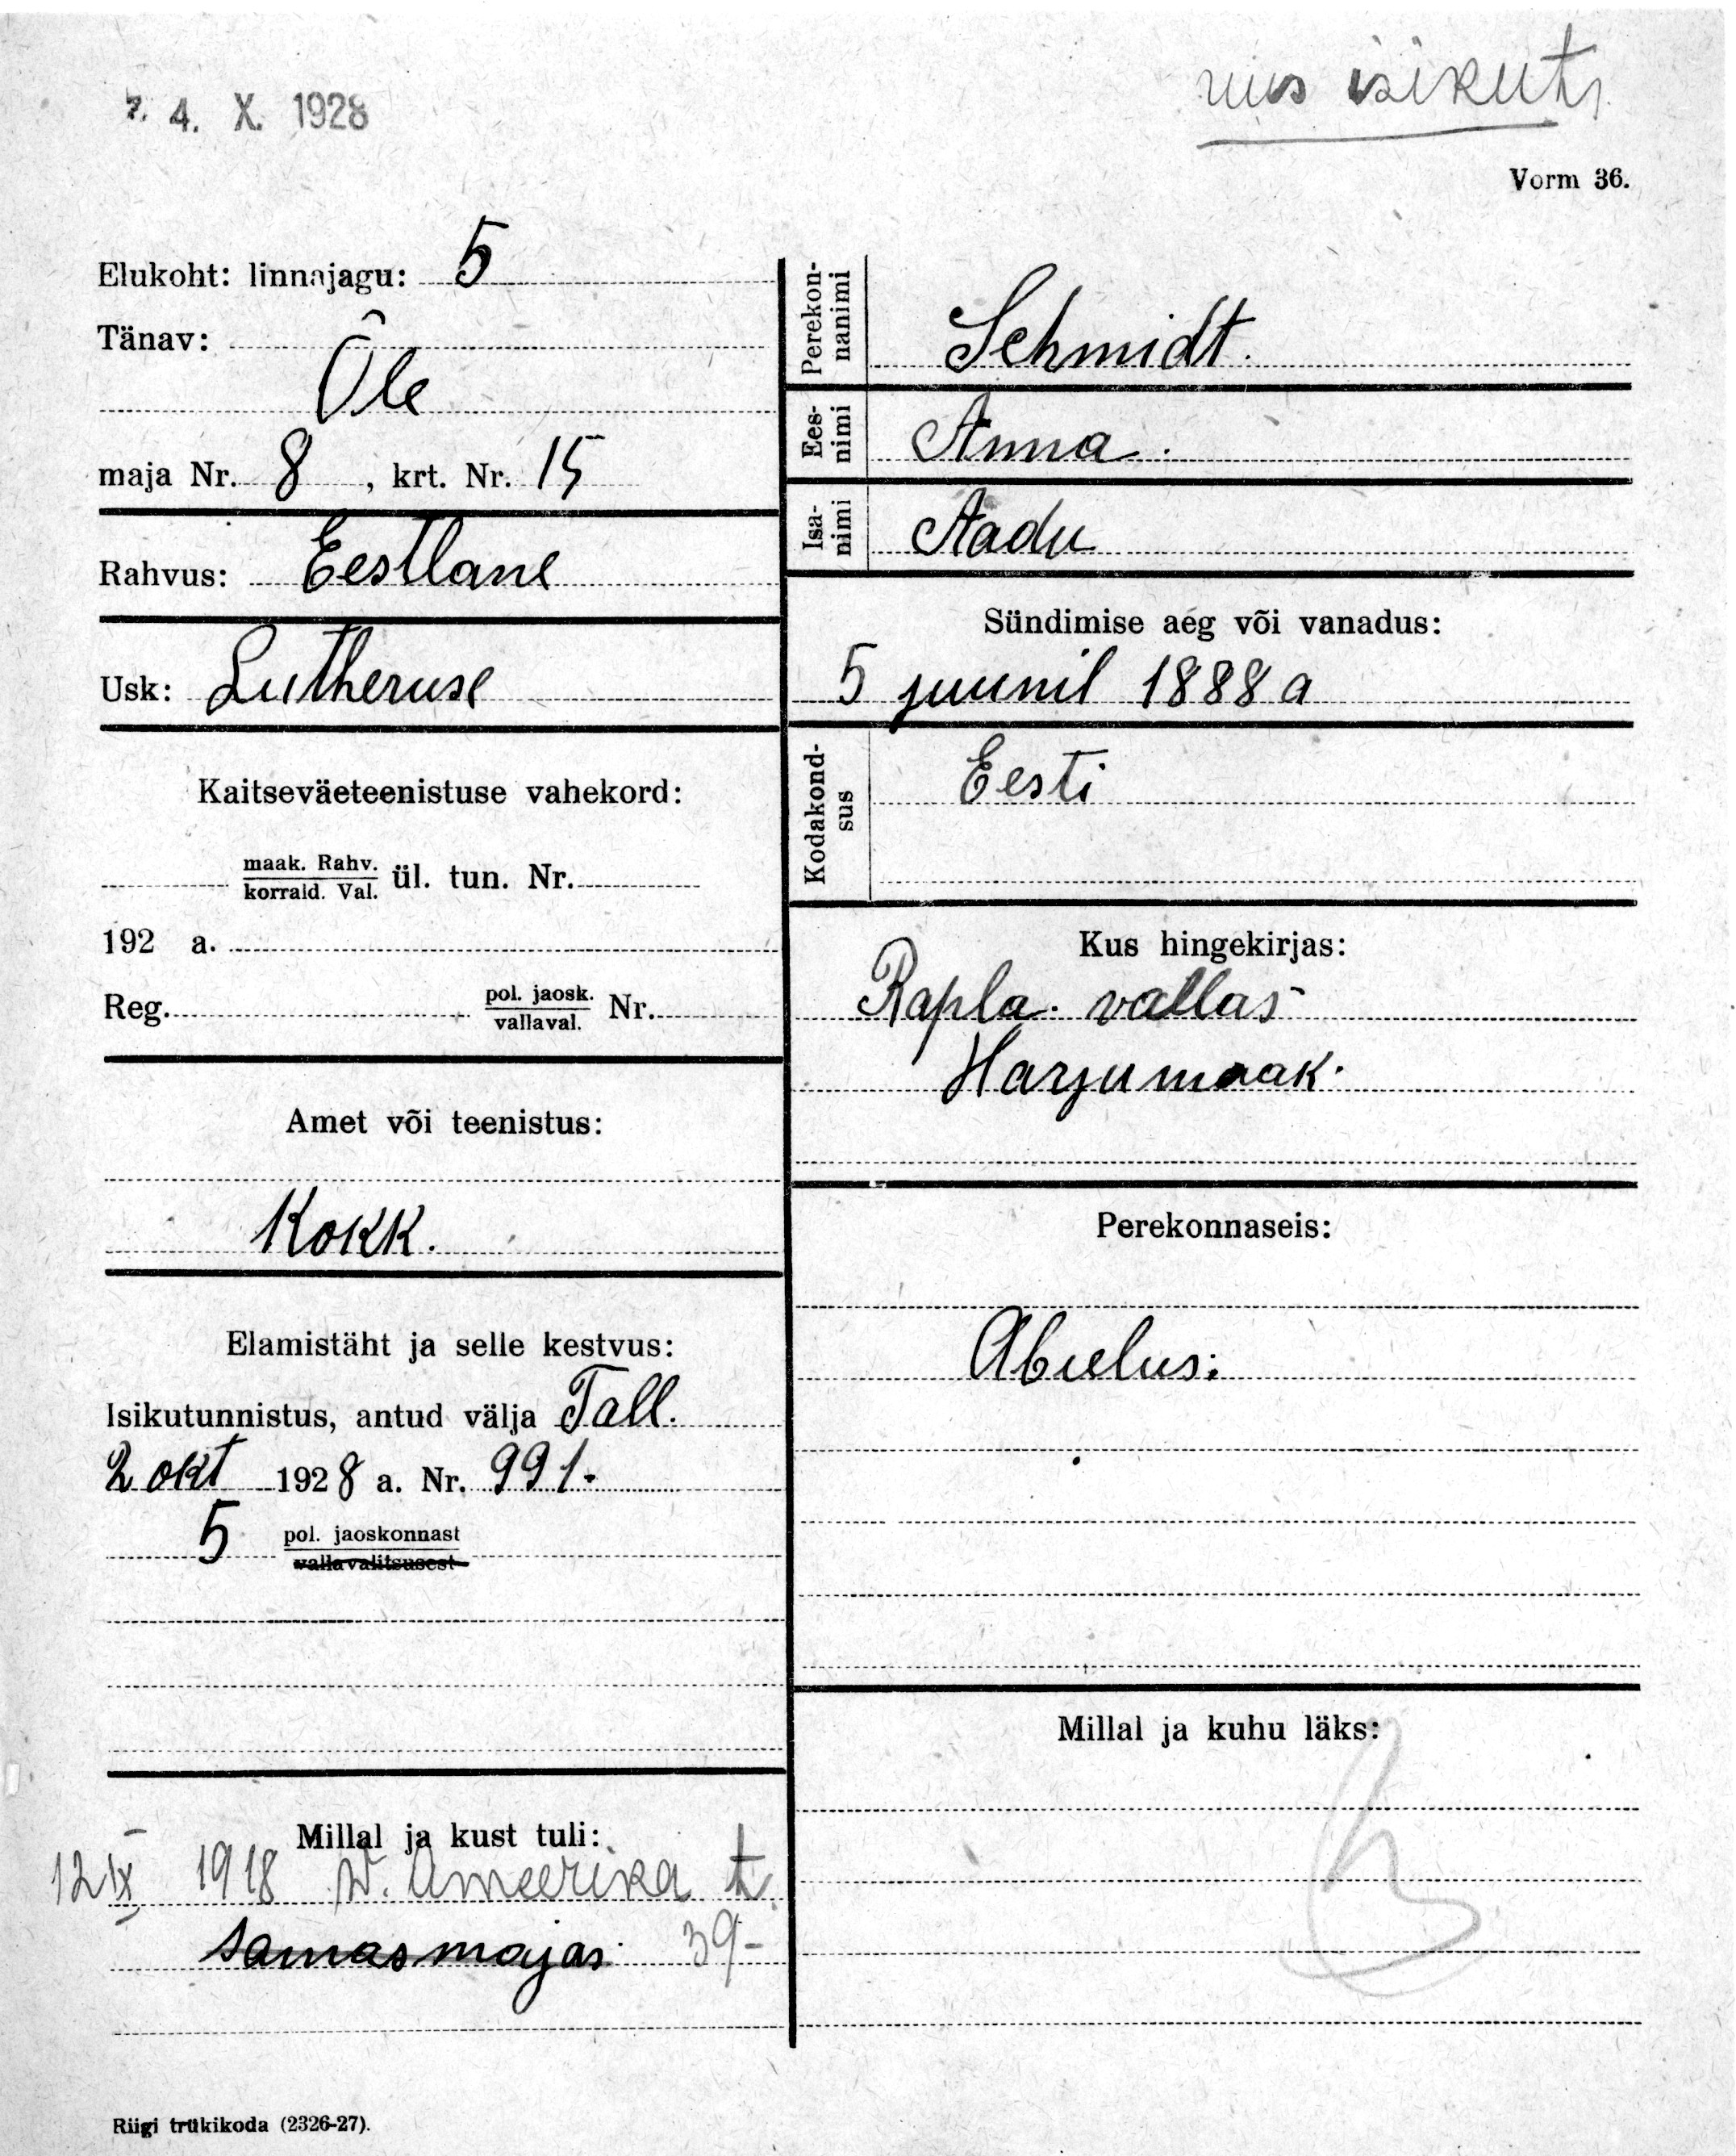 4. X. 1928
uus isikut.
Vorm 36.
Elukoht: linnajagu: 5
Tänav:
Õle
maja Nr. 8, krt. Nr. 15
Rahvus: Eestlane
Usk: Lutheruse
Kaitseväeteenistuse vahekord:
maak. Rahv.
korrald. Val. ül. tun. Nr.
192 a.
Reg. pol. jaosk. Nr.
vallaval.
Amet või teenistus:
Kokk.
Elamistäht ja selle kestvus:
Isikutunnistus, antud välja Tall.
2 okt 1928 a. Nr. 991.
5 pol. jaoskonnast
vallavalitsusest
Millal ja kust tuli:
12 IX 1918 W. Ameerika t.
samas majas 39-
Riigi trükikoda (2326-27).
Perekon-
nanimi
Schmidt.
Ees-
nimi
Anna.
Isa-
nimi
Aadu
Sündimise aeg või vanadus:
5 juunil 1888 a
Kodakond-
sus
Eesti
Kus hingekirjas:
Rapla. vallas
Harjumaak.
Perekonnaseis:
Abielus.
Millal ja kuhu läks: